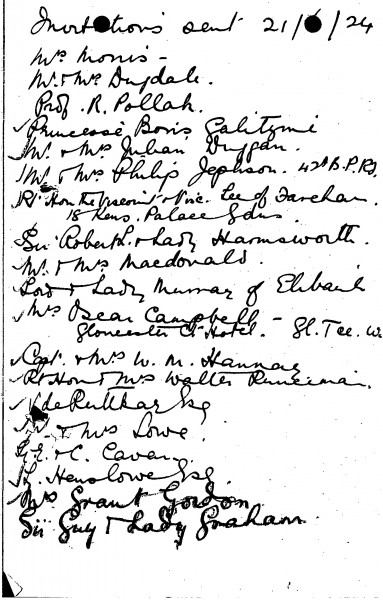 Invitations sent 21/6/24
Mrs Morris -
Mr & Mrs Dugdale.
Prof. R. Pollak.
Princesse Boris Galitzine
Mr. & Mrs Julian Duggan.
Mr. & Mrs Philip Jephson. 42 B.P.Rd.
Rt Hon the Viscount & Visc. Lee of Fareham.
18 Kens. Palace Gdns.
Sir Robert L. & Lady Harmsworth.
Mr. & Mrs Macdonald.
Lord & Lady Murray of Elibank
Mrs Dear Campbell -
Gloucester Ct Hotel. - Gl. Tee. W
Capt. & Mrs W. M. Hannay
Rt Hon & Mrs Walter Runciman.
de Esq
& Mrs Lowe.
& C. Cavan.
Henslowe Esq.
Mrs Grant Gordon
Sir Guy & Lady Graham.